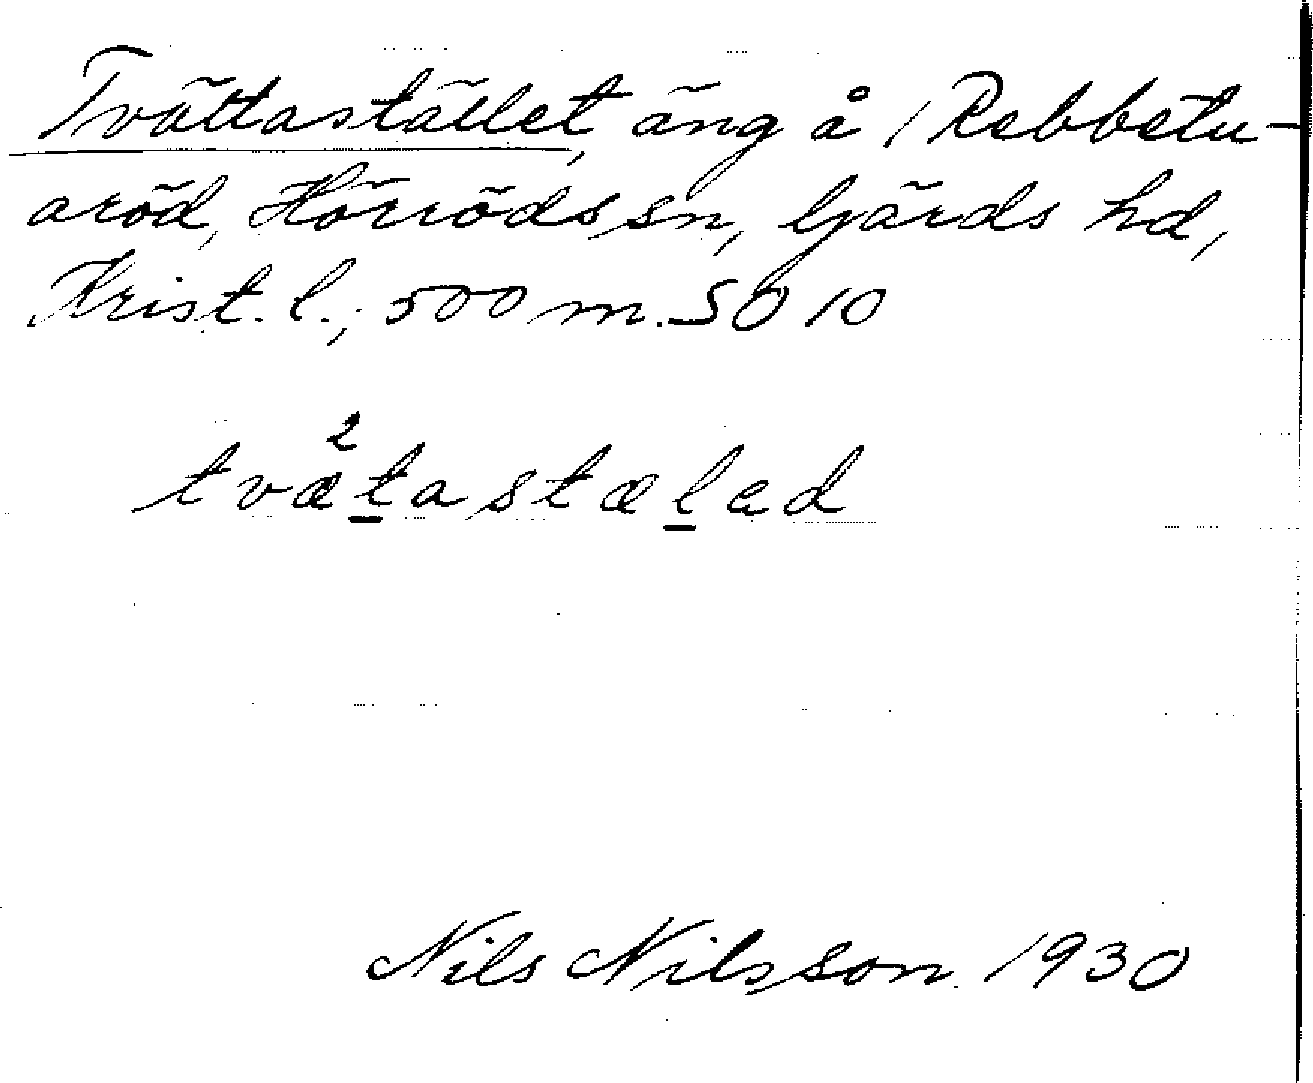 Tvättastället, äng å 1 Rebbetu-
aröd, Hörröds sn, Gärds hd,
Krist. l., 500 m. SO 10
2
tvætastælad
Nils Nilsson. 1930